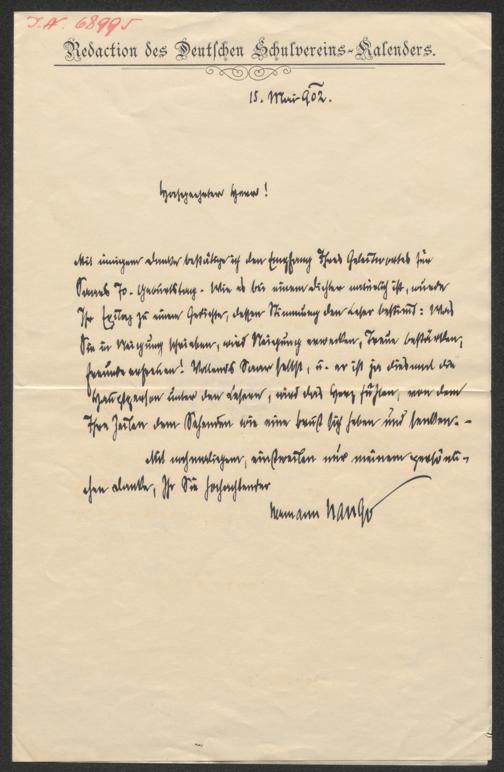 I.N. 68995
Redaction des Deutschen Schulvereins-Kalenders.
15. Mai 902.
Hochgeehrter Herr!
Mit innigem Danke bestätige ich den Empfang Ihres Geleitwortes für
Saars 70. Geburtstag. Wie es bei einem Dichter natürlich ist, wurde
Ihr zu einem Gedichte, dessen Stimmung den Leser bestimmt: Was
Sie in Neigung schrieben, wird Neigung erwecken, Treue bestärken,
Freunde erziehen! Vollends Saar selbst, u. er ist ja diesmal die
Hauptperson unter den Lesern, wird das Herz fühlen, von dem
Ihre Zeilen dem Sehenden wie eine Brust sich heben und senken. -
Mit nochmaligem, einstweilen nur meinem persönli-
chen Danke, Ihr Sie hochachtender
Hermann Hango